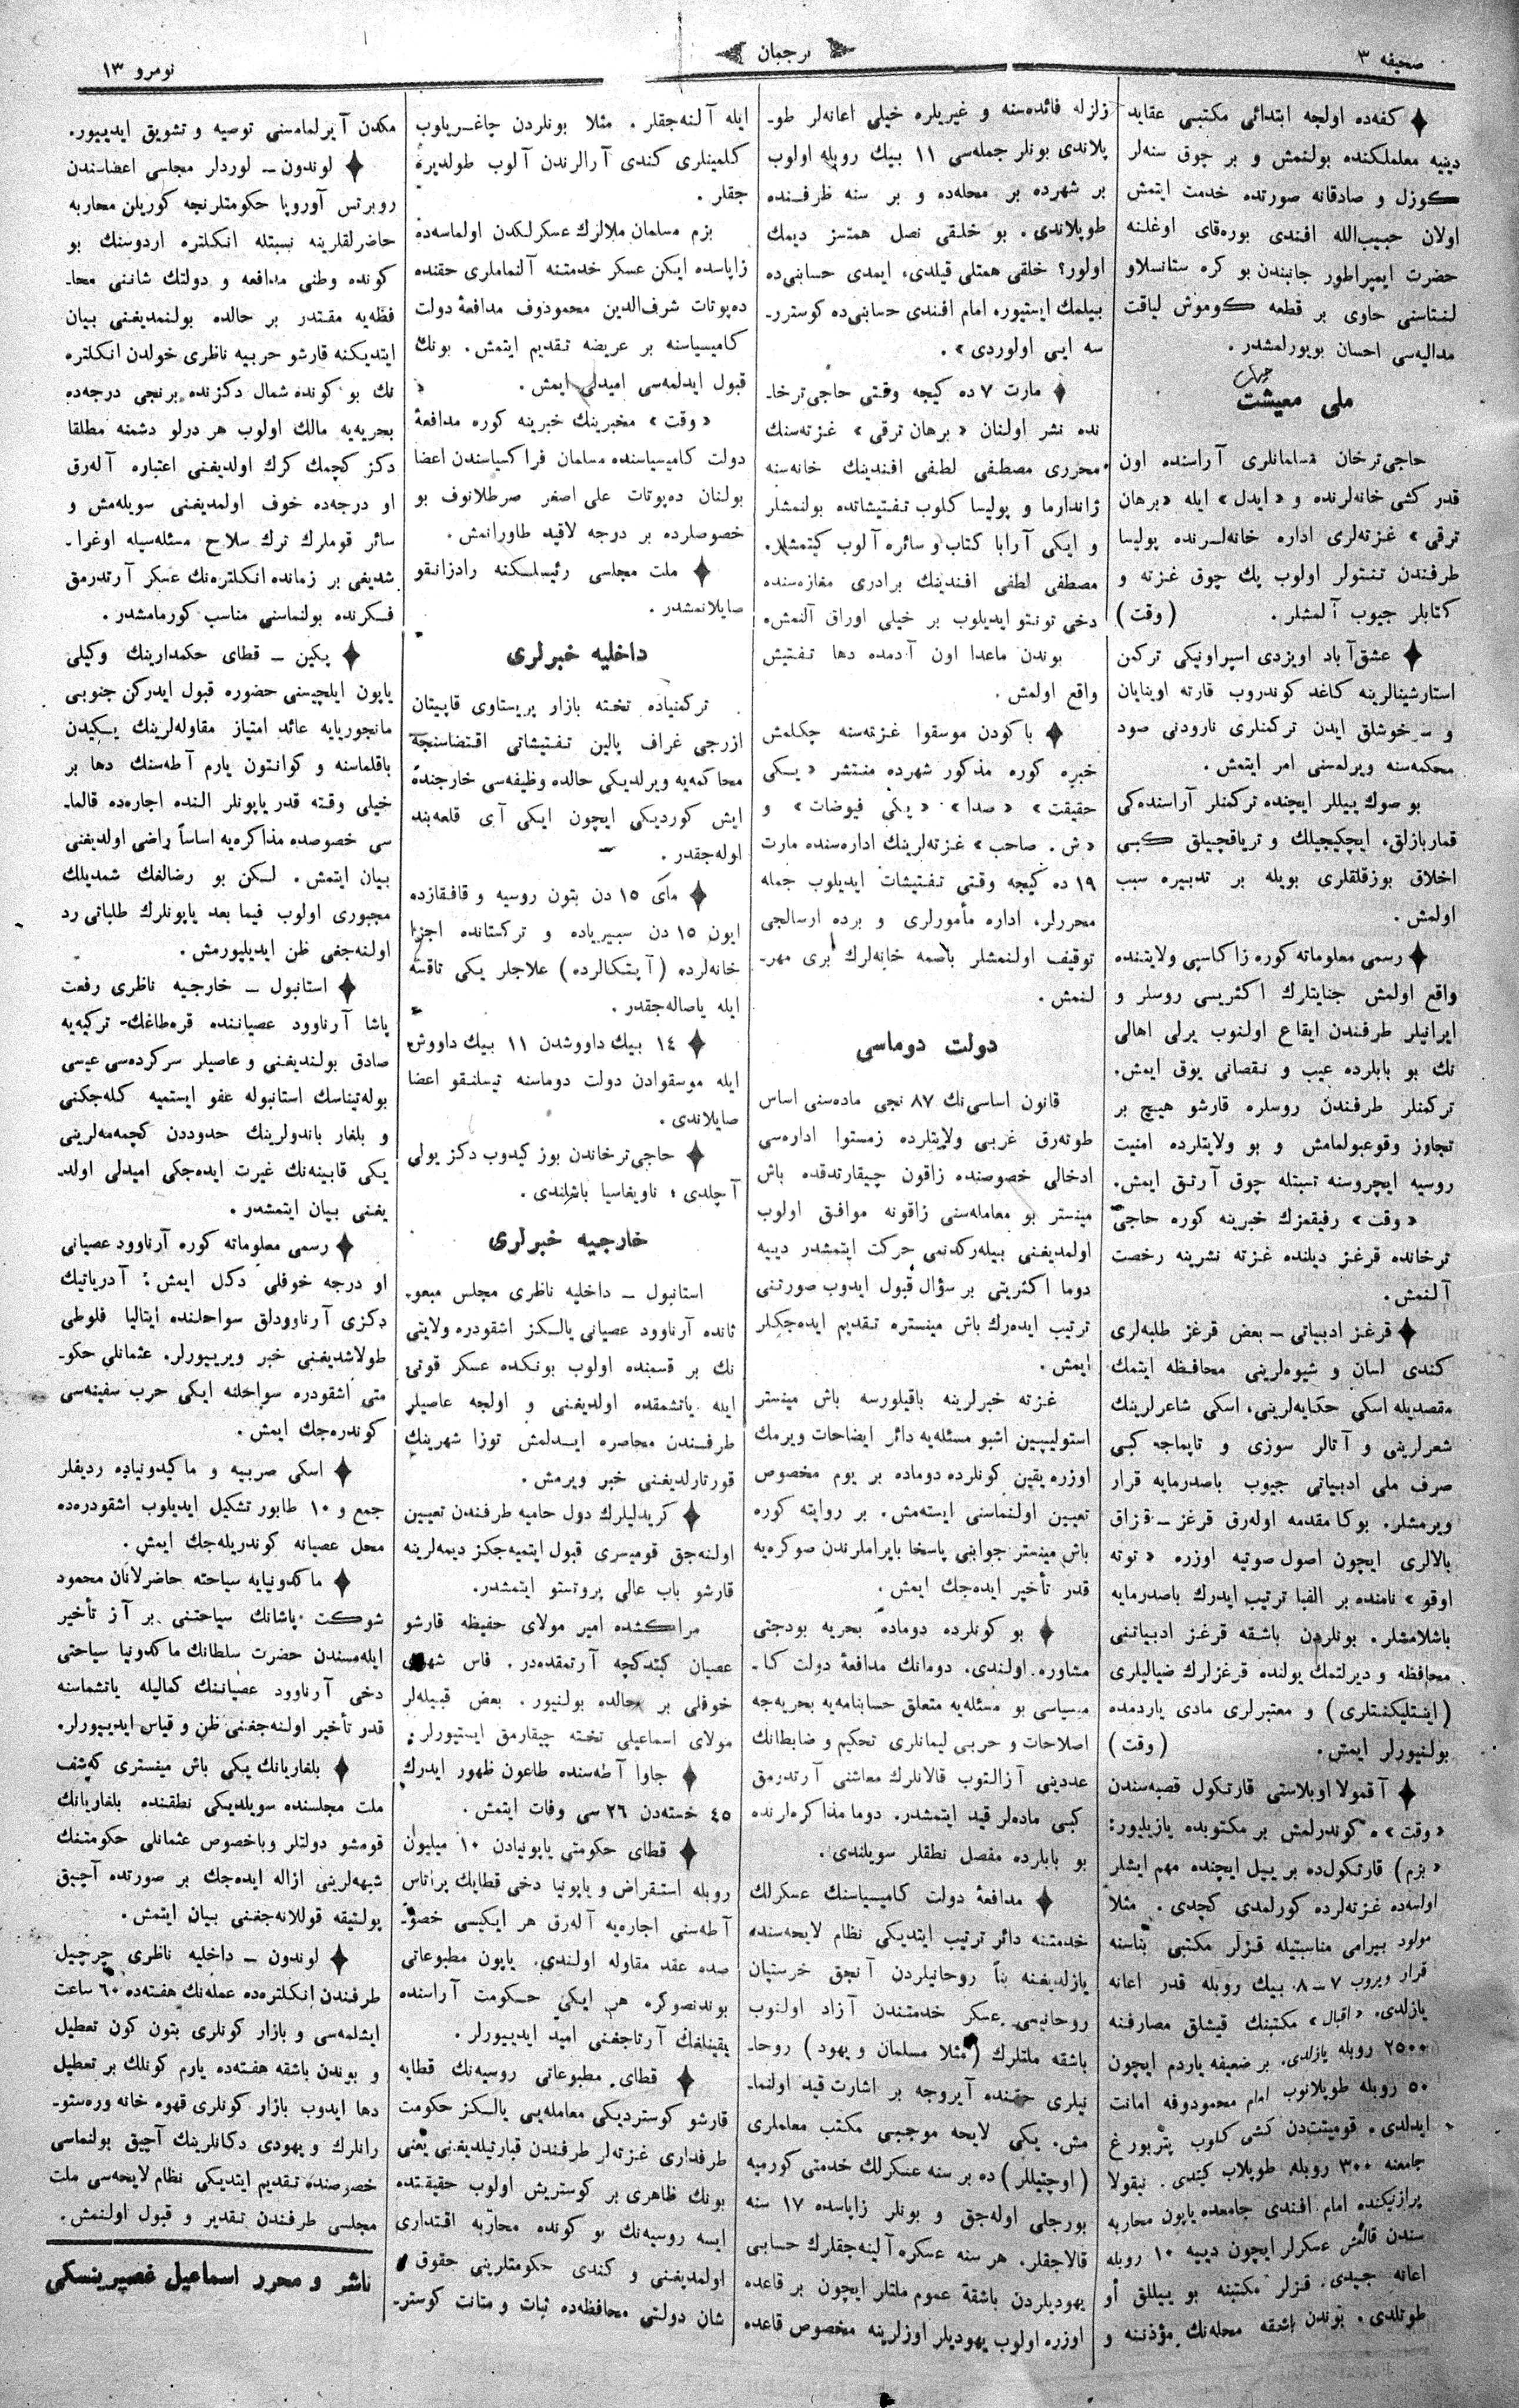 صحیفه ٣
ترجمان
نومرو ١٣
كفه‌ده اولجه ابتدائی مكتبی عقايد
دينيه معلملكنده بولنمش و بر چوق سنه‌لر
كوزل و صادقانه صورتده خدمت ايتمش
اولان حبيب‌الله افندی بوره‌قای اوغلنه
حضرت ايمپراطور جانبندن بو كره ستانسلاو
لنتاسنی حاوی بر قطعه كوموش لياقت
مداليه‌سی احسان بويورلمشدر.
ملی معيشت
حاجی‌ترخان مسلمانلری آراسنده اون
قدر كشی خانه‌لرنده و «ايدل» ايله «برهان
ترقی» غزته‌لری اداره خانه‌لرنده پوليسا
طرفندن تنتولر اولوب پك چوق غزته و
كتابلر جيوب آلمشلر. (وقت)
عشق‌آباد اويزدی اسپراونيكی تركمن
استارشينالرينه كاغد كوندروب قارته اوينايان
و سرخوشلق ايدن تركمنلری نارودنی صود
محكمه‌سنه ويرلمسنی امر ايتمش.
بو صوك ييللر ايچنده تركمنلر آراسنده‌كی
قماربازلق، ايچكيجيلك و ترياقچيلق كبی
اخلاق بوزقلقلری بويله بر تدبيره سبب
اولمش.
رسمی معلوماته كوره زاكاسپی ولايتنده
واقع اولمش جنايتلرك اكثريسی روسلر و
ايرانيلر طرفندن ايقاع اولنوب يرلی اهالی
نك بو بابلرده عيب و نقصانی يوق ايمش.
تركمنلر طرفندن روسلره قارشو هيچ بر
تجاوز وقوعبولمامش و بو ولايتلرده امنيت
روسيه ايچروسنه نسبتله چوق آرتق ايمش.
«وقت» رفيقمزك خبرينه كوره حاجی
ترخانده قرغز ديلنده غزته نشرينه رخصت
آلنمش.
قرغز ادبياتی ــ بعض قرغز طلبه‌لری
كندی لسان و شيوه‌لرينی محافظه ايتمك
مقصديله اسكی حكايه‌لرينی، اسكی شاعرلرينك
شعرلرينی و آتالر سوزی و تاپماجه كبی
صرف ملی ادبياتی جيوب باصدرمايه قرار
ويرمشلر. بوكا مقدمه اوله‌رق قرغز ــ قزاق
بالالری ايچون اصول صوتيه اوزره «توته
اوقو» نامنده بر الفبا ترتيب ايدرك باصدرمايه
باشلامشلر. بونلردن باشقه قرغز ادبياتنی
محافظه و ديرلتمك يولنده قرغزلرك ضياليلری
(اينتليكنتلری) و معتبرلری مادی ياردمده
بولنيورلر ايمش. (وقت)
آقمولا اوبلاستی قارتكول قصبه‌سندن
«وقت» ه كوندرلمش بر مكتوبده يازيليور:
«بزم) قارتكول‌ده بر ييل ايچنده مهم ايشلر
اولسه‌ده غزته‌لرده كورلمدی كچدی. مثلا
مولود بيرامی مناسبتيله قزلر مكتبی بناسنه
قرار ويروب ٧ ــ ٨ بيك روبله قدر اعانه
يازلدی. «اقبال» مكتبنك قيشلق مصارفنه
٢٥٠٠ روبله يازلدی. بر ضعيفه ياردم ايچون
٥٠ روبله طوپلانوب امام محمودوفه امانت
ايدلدی. قوميتت‌دن كشی كلوب پتربورغ
جامعنه ٣٠٠ روبله طوپلاب كيتدی. نيقولا
پرازنيكنده امام افندی جامعده ياپون محاربه
سندن قالمش عسكرلر ايچون دييه ١٠ روبله
اعانه جيدی. قزلر مكتبنه بو ييللق أو
طوتلدی. بوندن باشقه محله‌نك مؤذننه و
زلزله فائده‌سنه و غيريلره خيلی اعانه‌لر طو-
پلاندی بونلر جمله‌سی ١١ بيك روبله اولوب
بر شهرده بر محله‌ده و بر سنه ظرفنده
طوپلاندی. بو خلقی نصل همتسز ديمك
اولور؟ خلقی همتلی قيلدی، ايمدی حسابنی‌ده
بيلمك ايستيور. امام افندی حسابنی‌ده كوسترر-
سه ايی اولوردی».
مارت ٧ ده كيجه وقتی حاجی‌ترخا-
نده نشر اولنان «برهان ترقی» غزته‌سنك
محرری مصطفی لطفی افندينك خانه‌سنه
ژاندارما و پوليسا كلوب تفتيشاتده بولنمشلر
و ايكی آرابا كتاب و سائره آلوب كيتمشلر.
مصطفی لطفی افندينك برادری مغازه‌سنده
دخی تونتو ايديلوب بر خيلی اوراق آلنمش.
بوندن ماعدا اون آدمده دها تفتيش
واقع اولمش.
باكودن موسقوا غزته‌سنه چكلمش
خبره كوره مذكور شهرده منتشر «يكی
حقيقت» «صدا» «يكی فيوضات» و
«ش. صاحب» غزته‌لرينك اداره‌سنده مارت
١٩ ده كيجه وقتی تفتيشات ايديلوب جمله
محررلر، اداره مأمورلری و برده ارسالجی
توقيف اولنمشلر باصمه خانه‌لرك بری مهر-
لنمش.
دولت دوماسی
قانون اساسی‌نك ٨٧ نجی ماده‌سنی اساس
طوته‌رق غربی ولايتلرده زمستوا اداره‌سی
ادخالی خصوصنده زاقون چيقارتدقده باش
مينستر بو معامله‌سنی زاقونه موافق اولوب
اولمديغنی بيله‌ركدنمی حركت ايتمشدر دييه
دوما اكثريتی بر سؤال قبول ايدوب صورتنی
ترتيب ايده‌رك باش مينستره تقديم ايده‌جكلر
ايمش.
غزته خبرلرينه باقيلورسه باش مينستر
استوليپين اشبو مسئله‌يه دائر ايضاحات ويرمك
اوزره يقين كونلرده دوماده بر يوم مخصوص
تعيين اولنماسنی ايسته‌مش. بر روايته كوره
باش مينستر جوابنی پاسخا بايراملرندن صوكره‌يه
قدر تأخير ايده‌جك ايمش.
بو كونلرده دوماده بحريه بودجتی
مشاوره اولندی. دومانك مدافعهٔ دولت كا-
ميسياسی بو مسئله‌يه متعلق حسابنامه‌يه بحريه‌جه
اصلاحات و حربی ليمانلری تحكيم و ضابطانك
عددينی آزالتوب قالانلرك معاشنی آرتدرمق
كبی ماده‌لر قيد ايتمشدر. دوما مذاكره‌لرنده
بو بابلرده مفصل نطقلر سويلندی.
مدافعهٔ دولت كاميسياسنك عسكرلك
خدمتنه دائر ترتيب ايتديكی نظام لايحه‌سنده
يازلديغنه بناً روحانيلردن آنجق خرستيان
روحانيسی عسكر خدمتندن آزاد اولنوب
باشقه ملتلرك (مثلا مسلمان و يهود) روحا-
نيلری حقنده آيروجه بر اشارت قيد اولنما-
مش. يكی لايحه موجبی مكتب معلملری
(اوچتيللر) ده بر سنه عسكرلك خدمتی كورميه
بورجلی اوله‌جق و بونلر زاپاسده ١٧ سنه
قالاجقلر. هر سنه عسكره آلينه‌جقلرك حسابی
يهوديلردن باشقة عموم ملتلر ايچون بر قاعده
اوزره اولوب يهوديلر اوزلرينه مخصوص قاعده
ايله آلنه‌جقلر. مثلا بونلردن چاغريلوب
كلمينلری كندی آرالرندن آلوب طولديره
جقلر.
بزم مسلمان ملالرك عسكرلكدن اولماسه‌ده
زاپاسده ايكن عسكر خدمتنه آلنماملری حقنده
ده‌پوتات شرف‌الدين محمودوف مدافعهٔ دولت
كاميسياسنه بر عريضه تقديم ايتمش. بونك
قبول ايدلمه‌سی اميدلی ايمش.
«وقت» مخبرينك خبرينه كوره مدافعهٔ
دولت كاميسياسنده مسلمان فراكسياسندن اعضا
بولنان ده‌پوتات علی اصغر صرطلانوف بو
خصوصلرده بر درجه لاقيد طاورانمش.
ملت مجلسی رئيسلكنه رادزانقو
صايلانمشدر.
داخليه خبرلری
تركمنياده تخته بازار پريستاوی قاپيتان
ازرجی غراف پالين تفتيشاتی اقتضاسنجه
محاكمه‌يه ويرلديكی حالده وظيفه‌سی خارجنده
ايش كورديكی ايچون ايكی آی قلعه‌بند
اوله‌جقدر.
مای ١٥ دن بتون روسيه و قافقازده
ايون ١٥ دن سبيرياده و تركستانده اجزا
خانه‌لرده (آپتكالرده) علاجلر يكی تاقسه
ايله ياصاله‌جقدر.
١٤ بيك داووشدن ١١ بيك داووش
ايله موسقوادن دولت دوماسنه تيسلنقو اعضا
صايلاندی.
حاجی‌ترخاندن بوز كيدوب دكز يولی
آچلدی؛ ناويغاسيا باشلندی.
خارجيه خبرلری
استانبول ــ داخليه ناظری مجلس مبعو-
ثانده آرناوود عصيانی يالكز اشقودره ولايتی
نك بر قسمنده اولوب بونكده عسكر قوتی
ايله ياتشمقده اولديغنی و اولجه عاصيلر
طرفندن محاصره ايدلمش توزا شهرينك
قورتارلديغنی خبر ويرمش.
كريدليلرك دول حاميه طرفندن تعيين
اولنه‌جق قوميسری قبول ايتميه‌جكز ديمه‌لرينه
قارشو باب عالی پروتستو ايتمشدر.
مراكشده امير مولای حفيظه قارشو
عصيان كيتدكچه آرتمقده‌در. فاس
خوفلی بر حالده بولنيور. بعض قبيله‌لر
مولای اسماعيلی تخته چيقارمق ايستيورلر.
جاوا آطه‌سنده طاعون ظهور ايدرك
٤٥ خسته‌دن ٢٦ سی وفات ايتمش.
قطای حكومتی ياپونيادن ١٠ ميليون
روبله استقراض و ياپونيا دخی قطايك پراتاس
آطه‌سنی اجاره‌يه آله‌رق هر ايكيسی خصو-
صده عقد مقاوله اولندی. ياپون مطبوعاتی
بوندنصوكره هر ايكی حكومت آراسنده
يقينلغك آرتاجغنی اميد ايدييورلر.
قطای مطبوعاتی روسيه‌نك قطايه
قارشو كوسترديكی معامله‌يی يالكز حكومت
طرفداری غزته‌لر طرفندن قبارتيلديغنی يعنی
بونك ظاهری بر كوستريش اولوب حقيقتده
ايسه روسيه‌نك بو كونده محاربه اقتداری
اولمديغنی و كندی حكومتلرينی حقوق
شان دولتی محافظه‌ده ثبات و متانت كوستر-
مكدن آيرلمامسنی توصيه و تشويق ايدييور.
لوندون ــ لوردلر مجلسی اعضاسندن
روبرتس آوروپا حكومتلرنجه كوريلن محاربه
حاضرلقلرينه نسبتله انكلتره اردوسنك بو
كونده وطنی مدافعه و دولتك شاننی محا-
فظه‌يه مقتدر بر حالده بولنمديغنی بيان
ايتديكنه قارشو حربيه ناظری خولدن انكلتره
نك بو كونده شمال دكزنده برنجی درجه‌ده
بحريه‌يه مالك اولوب هر درلو دشمنه مطلقا
دكز كچمك كرك اولديغنی اعتباره آله‌رق
او درجه‌ده خوف اولمديغنی سويله‌مش و
سائر قوملرك ترك سلاح مسئله‌سيله اوغرا-
شديغی بر زمانده انكلتره‌نك عسكر آرتدرمق
فكرنده بولنماسنی مناسب كورمامشدر.
پكين ــ قطای حكمدارينك وكيلی
ياپون ايلچيسنی حضوره قبول ايدركن جنوبی
مانجوريايه عائد امتياز مقاوله‌لرينك يكيدن
باقلماسنه و كوانتون يارم آطه‌سنك دها بر
خيلی وقته قدر ياپونلر النده اجاره‌ده قالما-
سی خصوصده مذاكره‌يه اساساً راضی اولديغنی
بيان ايتمش. لكن بو رضالغك شمديلك
مجبوری اولوب فيما بعد ياپونلرك طلباتی رد
اولنه‌جغی ظن ايديليورمش.
استانبول ــ خارجيه ناظری رفعت
پاشا آرناوود عصياننده قره‌طاغك تركيه‌يه
صادق بولنديغنی و عاصيلر سركرده‌سی عيسی
بوله‌تيناسك استانبوله عفو ايستميه كله‌جكنی
و بلغار باندولرينك حدوددن كچمه‌مه‌لرينی
يكی قابينه‌نك غيرت ايده‌جكی اميدلی اولد-
يغنی بيان ايتمشدر.
رسمی معلوماته كوره آرناوود عصيانی
او درجه خوفلی دكل ايمش: آدرياتيك
دكزی آرناوودلق سواحلنده ايتاليا فلوطی
طولاشديغنی خبر ويرييورلر. عثمانلی حكو-
متی اشقودره سواحلنه ايكی حرب سفينه‌سی
كوندره‌جك ايمش.
اسكی صربيه و ماكيدونياده رديفلر
جمع و ١٠ طابور تشكيل ايديلوب اشقودره‌ده
محل عصيانه كوندريله‌جك ايمش.
ماكدونيايه سياحته حاضرلانان محمود
شوكت پاشانك سياحتنی بر آز تأخير
ايله‌مسندن حضرت سلطانك ماكدونيا سياحتی
دخی آرناوود عصياننك كماليله ياتشماسنه
قدر تأخير اولنه‌جغنی ظن و قياس ايدييورلر.
بلغاريانك يكی باش مينستری كه‌شف
ملت مجلسنده سويلديكی نطقنده بلغاريانك
قومشو دولتلر وباخصوص عثمانلی حكومتنك
شبهه‌لرينی ازاله ايده‌جك بر صورتده آچيق
پولتيقه قوللانه‌جغنی بيان ايتمش.
لوندون ــ داخليه ناظری چرچيل
طرفندن انكلتره‌ده عمله‌نك هفته‌ده ٦٠ ساعت
ايشلمه‌سی و بازار كونلری بتون كون تعطيل
و بوندن باشقه هفته‌ده يارم كونلك بر تعطيل
دها ايدوب بازار كونلری قهوه خانه و رستو-
رانلرك و يهودی دكانلرينك آچيق بولنماسی
خصوصنده تقديم ايتديكی نظام لايحه‌سی ملت
مجلسی طرفندن تقدير و قبول اولنمش.
ناشر و محرر اسماعيل غصپرينسكی